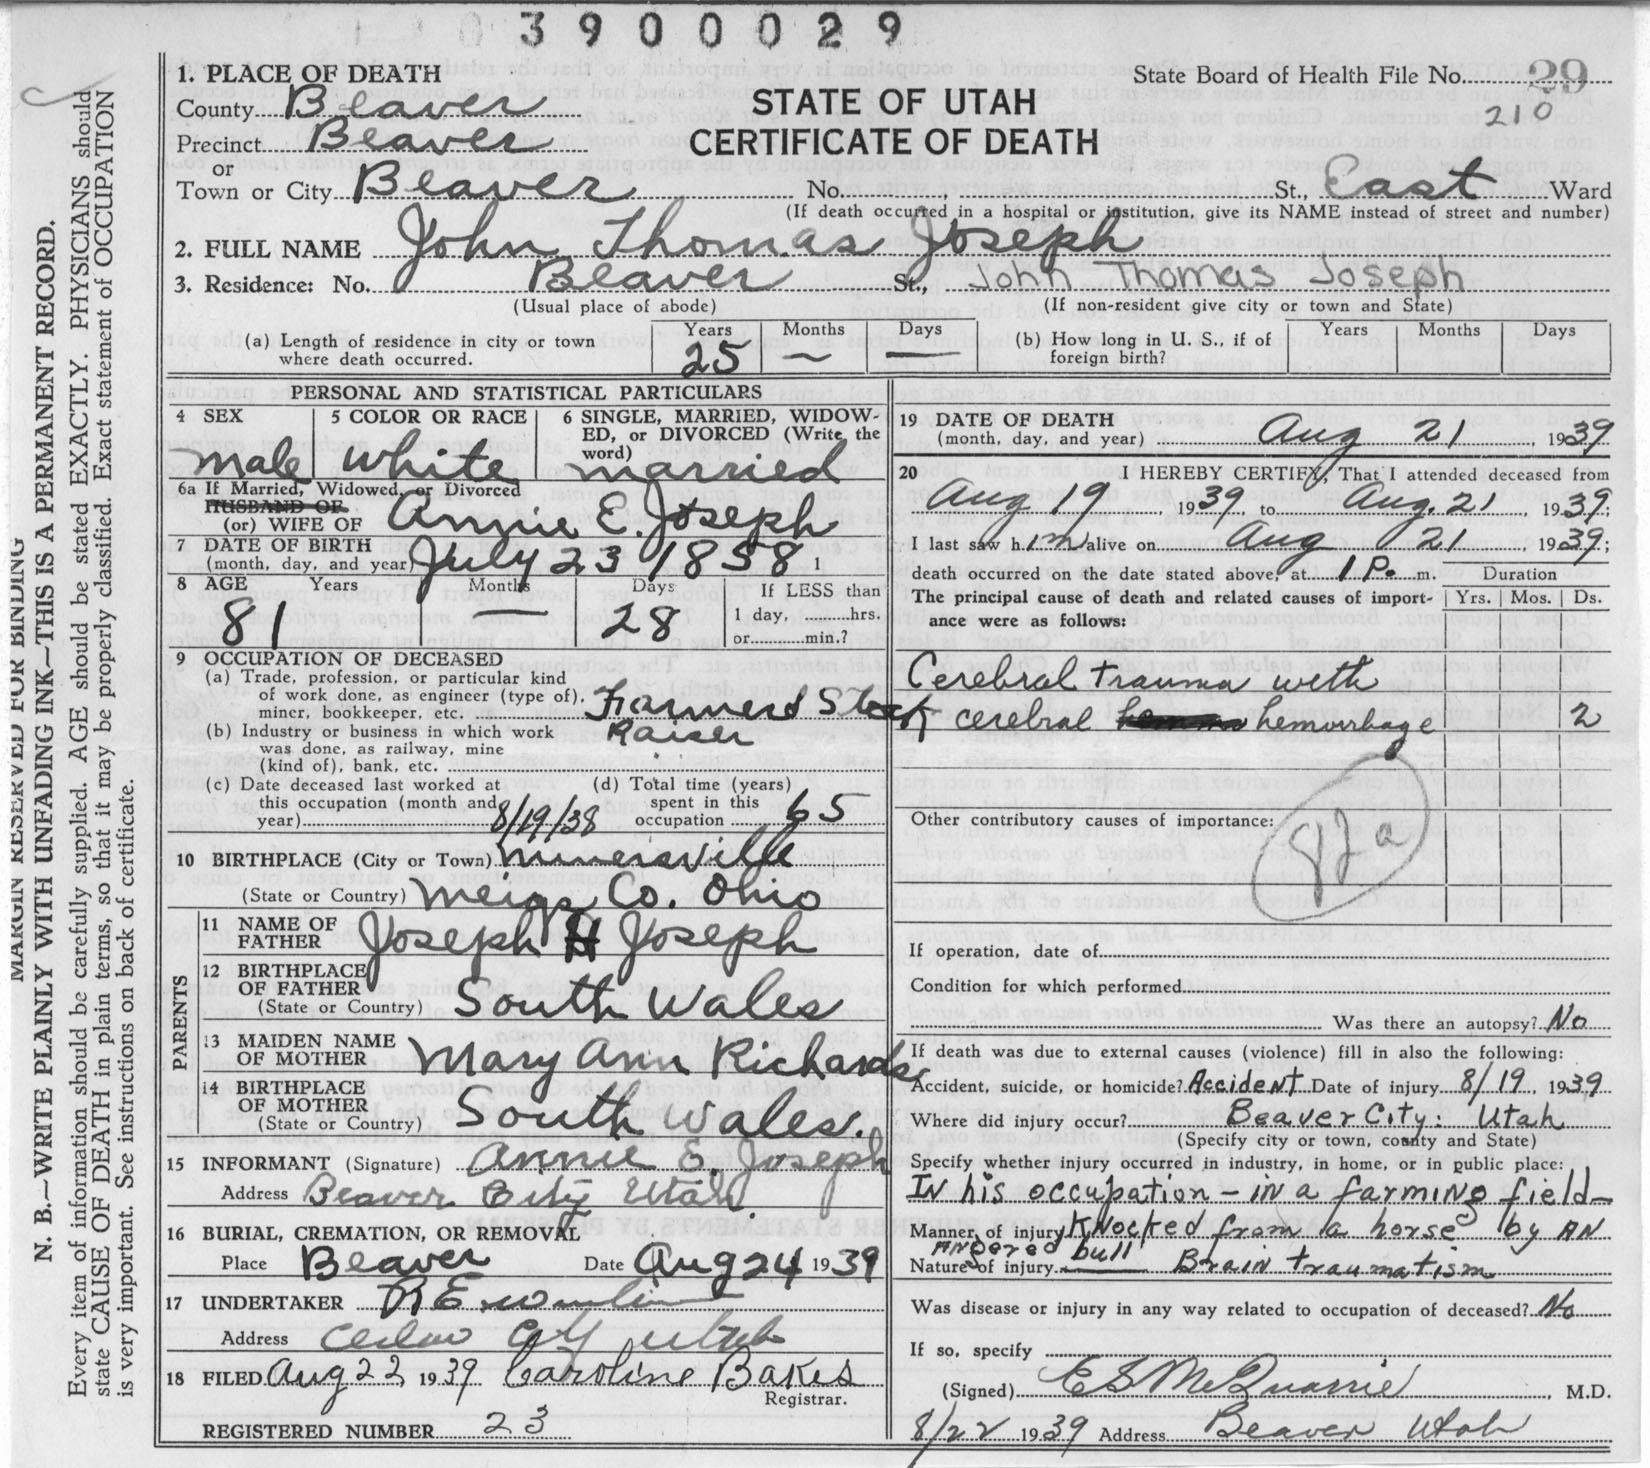 3900029
1. PLACE OF DEATH
State Board of Health File No. 29
210
County Beaver
STATE OF UTAH
CERTIFICATE OF DEATH
Precinct Beaver
or
Town or City Beaver No. St., East Ward
(If death occurred in a hospital or institution, give its NAME instead of street and number)
2. FULL NAME John Thomas Joseph
3. Residence: No. Beaver St., John Thomas Joseph
(Usual place of abode) (If non-resident give city or town and State)
(a) Length of residence in city or town where death occurred. Years 25 Months — Days —
(b) How long in U. S., if of foreign birth? Years Months Days
PERSONAL AND STATISTICAL PARTICULARS
4 SEX male
5 COLOR OR RACE White
6 SINGLE, MARRIED, WIDOWED, or DIVORCED (Write the word) married
6a If Married, Widowed, or Divorced
HUSBAND OF
(or) WIFE OF Annie E. Joseph
7 DATE OF BIRTH
(month, day, and year) July 23 1858 1
8 AGE Years 81 Months — Days 28
If LESS than
1 day, hrs.
or min.?
9 OCCUPATION OF DECEASED
(a) Trade, profession, or particular kind
of work done, as engineer (type of),
miner, bookkeeper, etc. Farmer & Stock
Raiser
(b) Industry or business in which work
was done, as railway, mine
(kind of), bank, etc.
(c) Date deceased last worked at
this occupation (month and
year) 8/19/38
(d) Total time (years)
spent in this
occupation 65
10 BIRTHPLACE (City or Town) Minersville
(State or Country) Meigs Co. Ohio
PARENTS
11 NAME OF
FATHER Joseph H Joseph
12 BIRTHPLACE
OF FATHER
(State or Country) South Wales
13 MAIDEN NAME
OF MOTHER Mary Ann Richards
14 BIRTHPLACE
OF MOTHER
(State or Country) South Wales.
15 INFORMANT (Signature) Annie E. Joseph
Address Beaver City Utah.
16 BURIAL, CREMATION, OR REMOVAL
Place Beaver Date Aug 24 1939
17 UNDERTAKER
Address Cedar City Utah
18 FILED Aug 22 1939 Caroline Bakes
Registrar.
REGISTERED NUMBER 23
19 DATE OF DEATH
(month, day, and year) Aug 21 1939
20 I HEREBY CERTIFY, That I attended deceased from
Aug 19 1939 to Aug. 21 1939;
I last saw him alive on Aug 21 1939;
death occurred on the date stated above, at 1 P. m. Duration
The principal cause of death and related causes of import- Yrs. Mos. Ds.
ance were as follows:
Cerebral trauma with
cerebral hemorrhage 2
Other contributory causes of importance:
82a
If operation, date of
Condition for which performed
Was there an autopsy? No
If death was due to external causes (violence) fill in also the following:
Accident, suicide, or homicide? Accident Date of injury 8/19 1939
Where did injury occur? Beaver City: Utah
(Specify city or town, county and State)
Specify whether injury occurred in industry, in home, or in public place:
In his occupation - in a farming field-
Manner of injury Knocked from a horse by an
angered bull
Nature of injury Brain traumatism
Was disease or injury in any way related to occupation of deceased? No
If so, specify
(Signed) E S McQuarrie, M.D.
8/22 1939 Address Beaver Utah
MARGIN RESERVED FOR BINDING
N. B.—WRITE PLAINLY WITH UNFADING INK—THIS IS A PERMANENT RECORD.
Every item of information should be carefully supplied. AGE should be stated EXACTLY. PHYSICIANS should
state CAUSE OF DEATH in plain terms, so that it may be properly classified. Exact statement of OCCUPATION
is very important. See instructions on back of certificate.